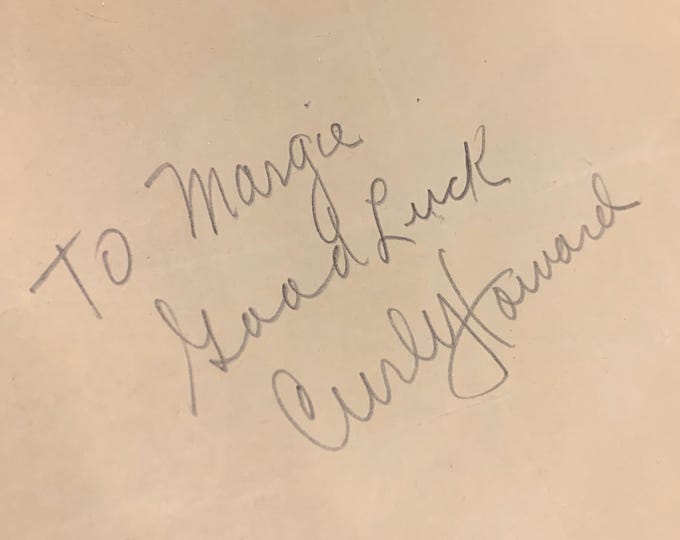 To Margie
Good Luck
Curly Howard